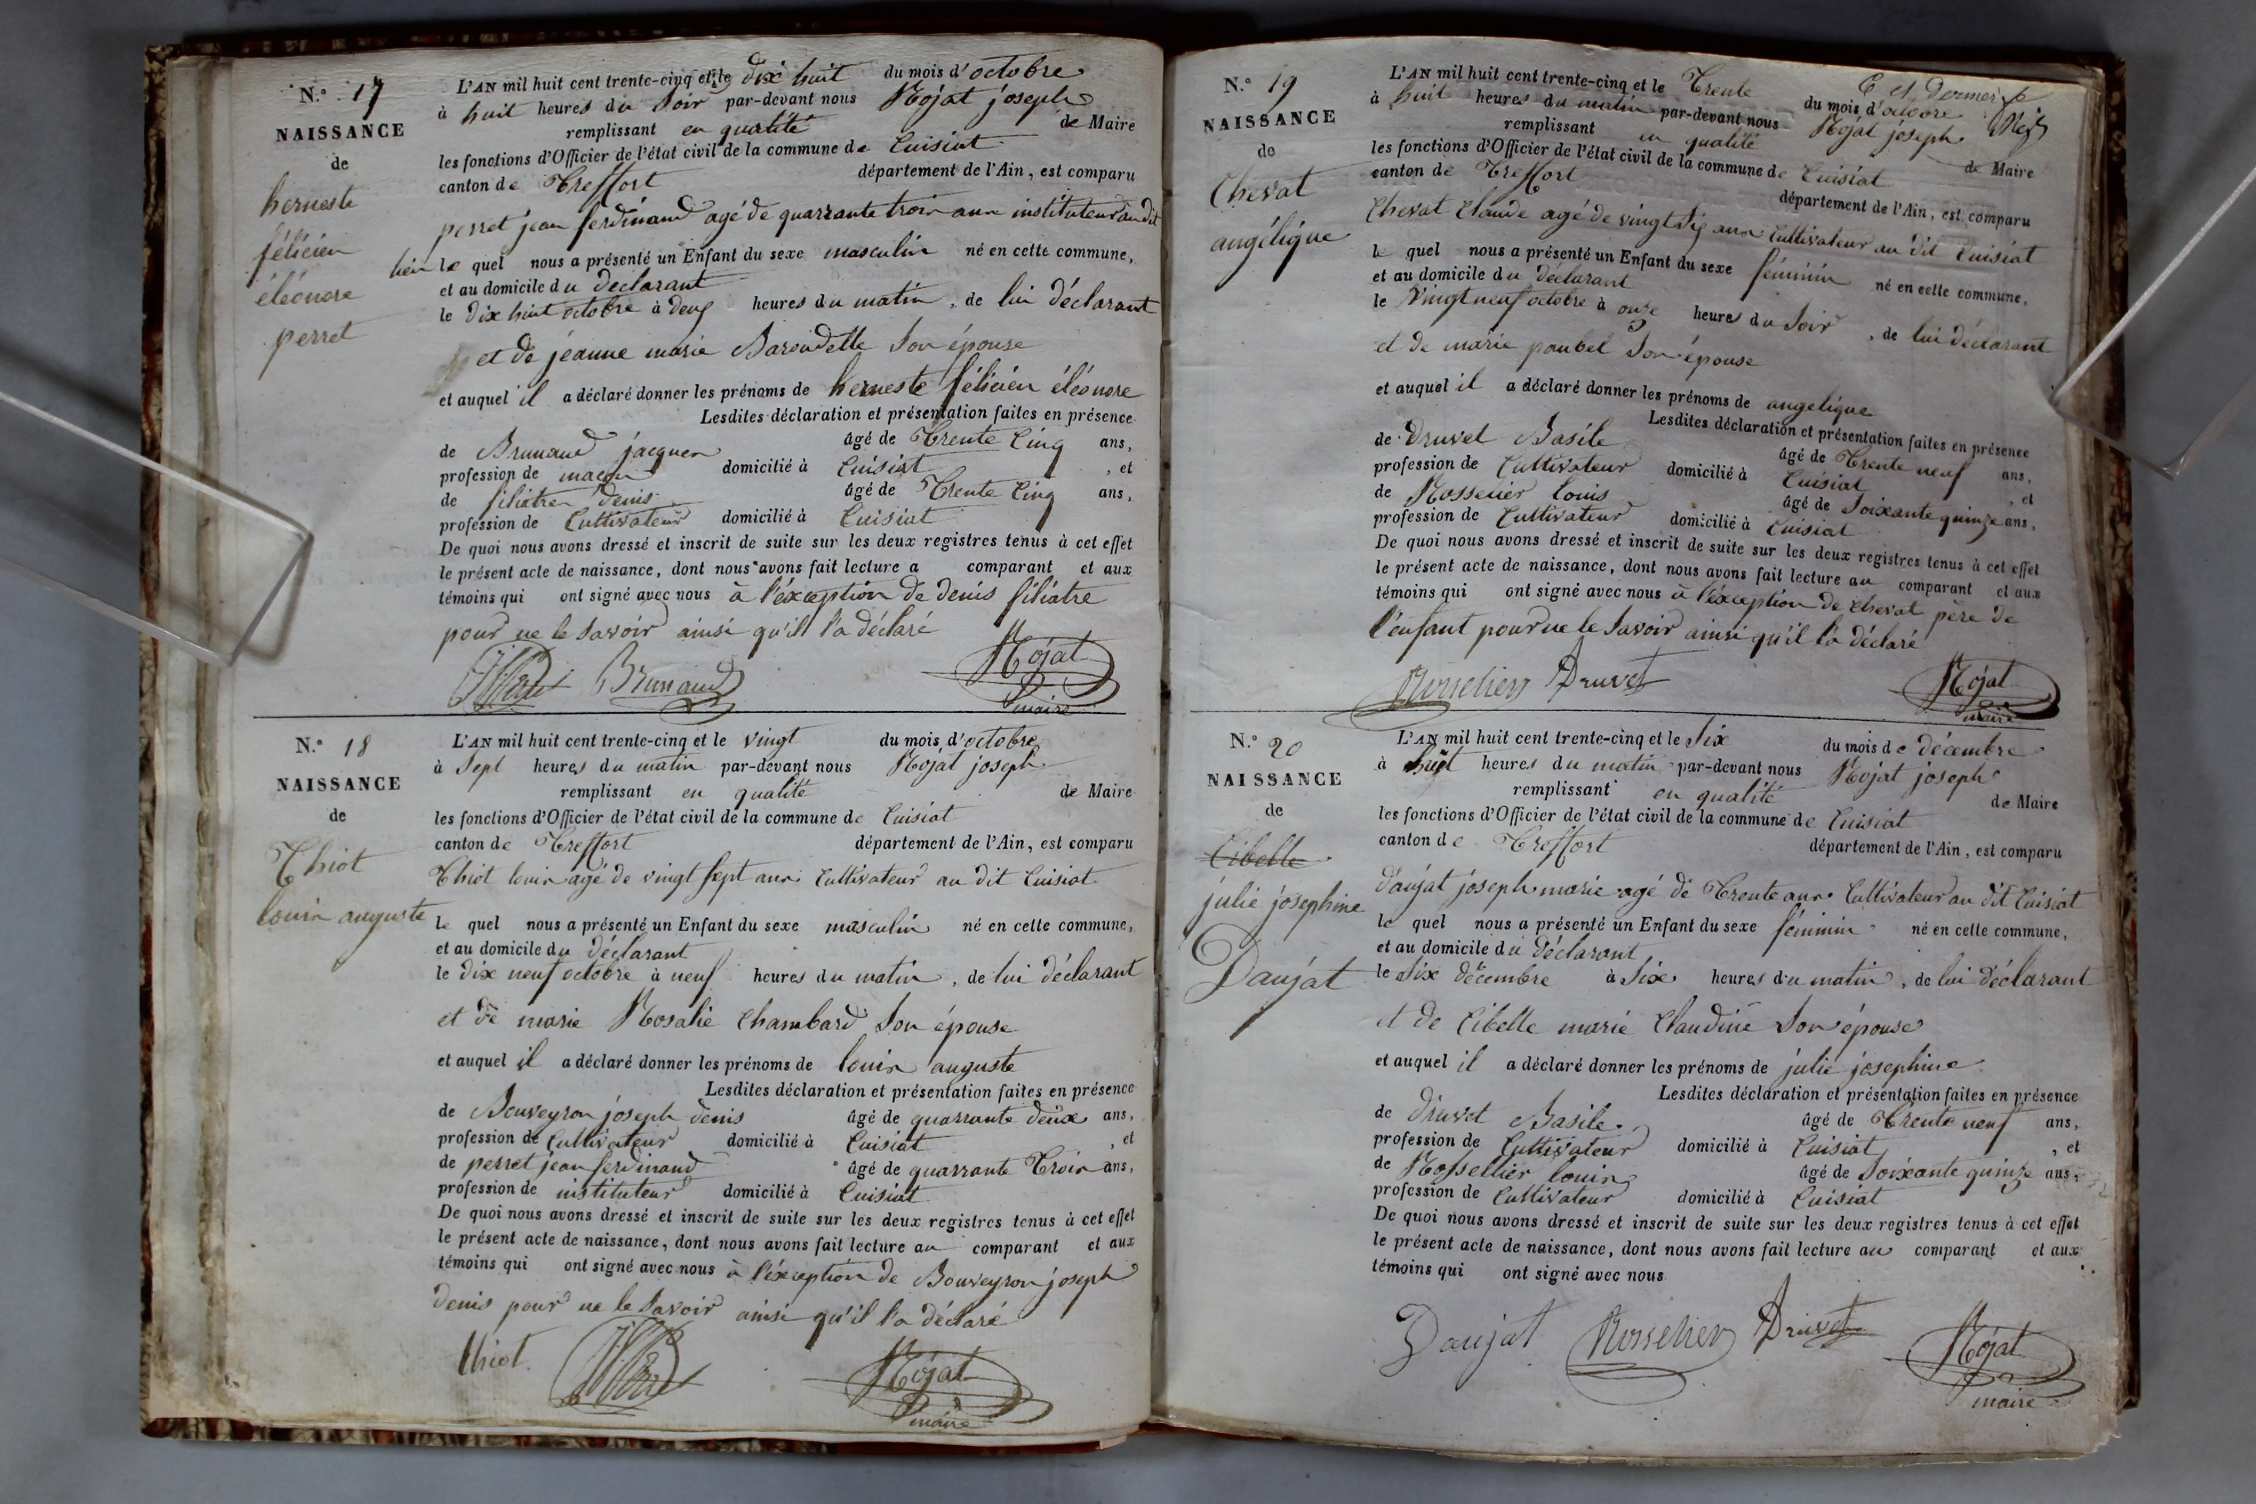 N.° 17
NAISSANCE
de
herneste
félicien
éléonore
perret
L'AN mil huit cent trente-cinq et le dix huit du mois d'octobre
à huit heures du soir par-devant nous Rojat joseph
remplissant en qualité de Maire
les fonctions d'Officier de l'état civil de la commune de Cuisiat
canton de Treffort département de l'Ain, est comparu
perret jean ferdinand agé de quarrante trois ans instituteur au dit
lieu le quel nous a présenté un Enfant du sexe masculin né en cette commune,
et au domicile du déclarant
le dix huit octobre à deux heures du matin, de lui déclarant
et de jeanne marie Baroudelle son épouse
et auquel il a déclaré donner les prénoms de herneste félicien éléonore
Lesdites déclaration et présentation faites en présence
de Brunaud jacques âgé de Trente Cinq ans,
profession de maçon domicilié à Cuisiat, et
de filiatre denis âgé de Trente Cinq ans,
profession de Cultivateur domicilié à Cuisiat
De quoi nous avons dressé et inscrit de suite sur les deux registres tenus à cet effet
le présent acte de naissance, dont nous avons fait lecture a comparant et aux
témoins qui ont signé avec nous à l'éxception de denis filiatre
pour ne le savoir ainsi qu'il l'a déclaré
Brunaud Rojat
maire
N.° 18
NAISSANCE
de
Thiot
louis auguste
L'AN mil huit cent trente-cinq et le vingt du mois d'octobre
à Sept heures du matin par-devant nous Rojat joseph
remplissant en qualité de Maire
les fonctions d'Officier de l'état civil de la commune de Cuisiat
canton de Treffort département de l'Ain, est comparu
Thiot louis agé de vingt sept ans Cultivateur au dit Cuisiat
le quel nous a présenté un Enfant du sexe masculin né en cette commune,
et au domicile du déclarant
le dix neuf octobre à neuf heures du matin, de lui déclarant
et de marie Rosalie Chambard son épouse
et auquel il a déclaré donner les prénoms de louis auguste
Lesdites déclaration et présentation faites en présence
de Bouveyron joseph denis âgé de quarrante deux ans,
profession de Cultivateur domicilié à Cuisiat, et
de perret jean ferdinand âgé de quarrante Trois ans,
profession de instituteur domicilié à Cuisiat
De quoi nous avons dressé et inscrit de suite sur les deux registres tenus à cet effet
le présent acte de naissance, dont nous avons fait lecture au comparant et aux
témoins qui ont signé avec nous à l'éxception de Bouveyron joseph
denis pour ne le savoir ainsi qu'il l'a déclaré
thiot Rojat
maire
N.° 19
NAISSANCE
de
Chevat
angélique
L'AN mil huit cent trente-cinq et le Trente du mois d'octobre
à huit heures du matin par-devant nous Rojat joseph
remplissant en qualité de Maire
les fonctions d'Officier de l'état civil de la commune de Cuisiat
canton de Treffort département de l'Ain, est comparu
Chevat Claude agé de vingt six ans Cultivateur au dit Cuisiat
le quel nous a présenté un Enfant du sexe féminin né en cette commune,
et au domicile du déclarant
le vingt neuf octobre à onze heures du soir, de lui déclarant
et de marie poubel son épouse
et auquel il a déclaré donner les prénoms de angelique
Lesdites déclaration et présentation faites en présence
de Druvet Basile âgé de Trente neuf ans,
profession de Cultivateur domicilié à Cuisiat, et
de Rosselier louis âgé de Soixante quinze ans,
profession de Cultivateur domicilié à Cuisiat
De quoi nous avons dressé et inscrit de suite sur les deux registres tenus à cet effet
le présent acte de naissance, dont nous avons fait lecture au comparant et aux
témoins qui ont signé avec nous à l'éxception de Chevat père de
l'enfant pour ne le savoir ainsi qu'il l'a déclaré
Rosselier Druvet Rojat
maire
N.° 20
NAISSANCE
de
Cibelle
julie josephine
Daujat
L'AN mil huit cent trente-cinq et le six du mois de décembre
à huit heures du matin par-devant nous Rojat joseph
remplissant en qualité de Maire
les fonctions d'Officier de l'état civil de la commune de Cuisiat
canton de Treffort département de l'Ain, est comparu
daujat joseph marie agé de Trente ans Cultivateur au dit Cuisiat
le quel nous a présenté un Enfant du sexe féminin né en cette commune,
et au domicile du déclarant
le Six décembre à Six heures du matin, de lui déclarant
et de Cibelle marie Claudine son épouse
et auquel il a déclaré donner les prénoms de julie josephine
Lesdites déclaration et présentation faites en présence
de druvet Basile âgé de Trente neuf ans,
profession de Cultivateur domicilié à Cuisiat, et
de Rossellier louis âgé de Soixante quinze ans,
profession de Cultivateur domicilié à Cuisiat
De quoi nous avons dressé et inscrit de suite sur les deux registres tenus à cet effet
le présent acte de naissance, dont nous avons fait lecture au comparant et aux
témoins qui ont signé avec nous
Daujat Rosselier Druvet Rojat
maire